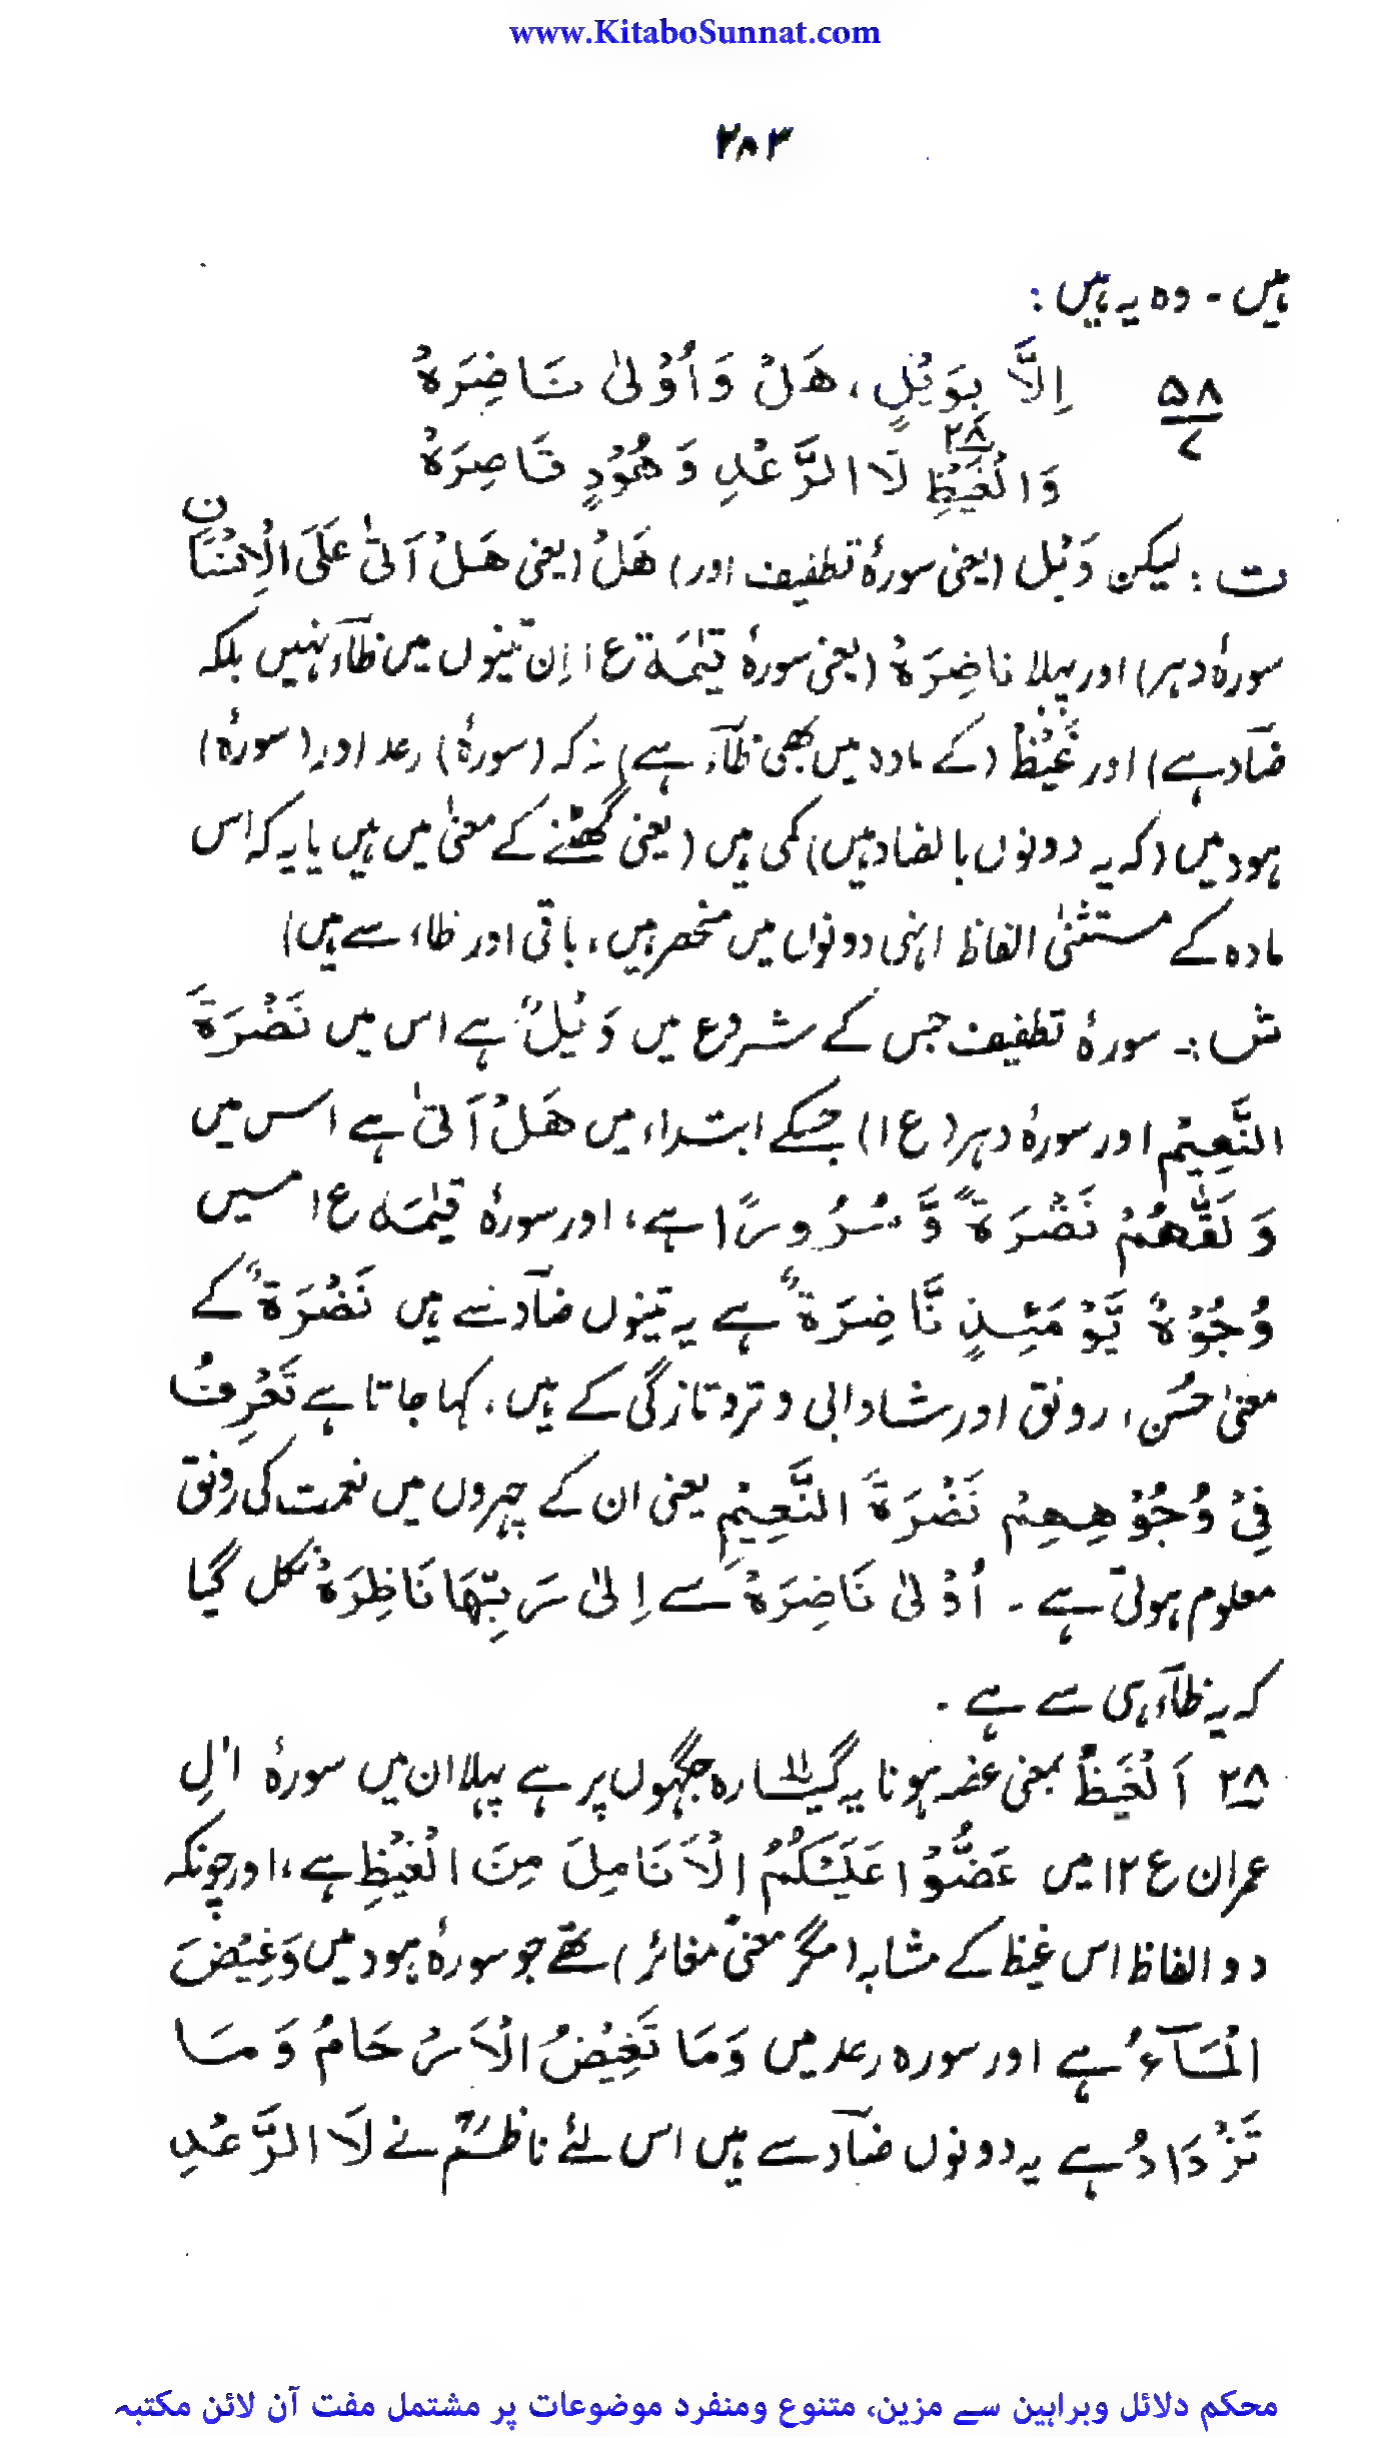 www.KitaboSunnat.com
۲۸۳
ہیں ۔ وہ یہ ہیں :
۵۸/۷ اِلَّا بِوَيْلٍ ، هَلْ وَاُوْلىٰ نَاضِرَهْ
وَالْغَيْظِ ۲۸ لَا الرَّعْدِ وَهُوْدٍ قَاصِرَهْ
ت : لیکن وَیْل (یعنی سورۂ تطفیف اور) ھَلْ (یعنی ھَلْ اَتیٰ عَلَی الْاِنْسَانِ
سورۂ دہر) اور پہلا ناضِرَہْ (یعنی سورۂ قیٰمَۃ ع ۱ اِن تینوں میں ظآء نہیں بلکہ
ضآد ہے) اور غَیْظُ (کے مادہ میں بھی ظآء ہے) نہ کہ (سورۂ) رعد اور (سورۂ)
ہود میں (کہ یہ دونوں بالضاد ہیں) کمی ہیں (یعنی گھٹنے کے معنیٰ میں ہیں یا یہ کہ اس
مادہ کے مستثنیٰ الفاظ انہی دونوں میں منحصر ہیں ، باقی اور ظاء سے ہیں)
ش :۔ سورۂ تطفیف جس کے شروع میں وَیْلٌ ہے اس میں نَضْرَةَ
النَّعِيْمِ اور سورۂ دہر (ع ۱) جسکے ابتداء میں هَلْ اَتىٰ ہے اس میں
وَلَقّٰهُمْ نَضْرَةً وَّسُرُورًا ہے ، اور سورۂ قیٰمَہ ع ۱ میں
وُجُوْهٌ يَّوْمَئِذٍ نَّاضِرَةٌ ہے یہ تینوں ضآد سے ہیں نَضْرَةٌ کے
معنیٰ حُسن ، رونق اور شادابی و تروتازگی کے ہیں ، کہا جاتا ہے تَعْرِفُ
فِيْ وُجُوْهِهِمْ نَضْرَةَ النَّعِيْمِ یعنی ان کے چہروں میں نعمت کی رونق
معلوم ہوتی ہے ۔ اُوْلیٰ نَاضِرَهْ سے اِلیٰ رَبِّهَا نَاظِرَهْ نکل گیا
کہ یہ ظآء ہی سے ہے ۔
۲۸ اَلْغَيْظُ بمعنی غصہ ہونا یہ گیارہ ۱۱ جگہوں پر ہے پہلا ان میں سورۂ اٰلِ
عمران ع ۱۲ میں عَضُّوْا عَلَيْكُمُ الْاَنَامِلَ مِنَ الْغَيْظِ ہے ، اور چونکہ
دو الفاظ اس غیظ کے مشابہ (مگر معنیً مغائر) تھے جو سورۂ ہود میں وَغِيْضَ
الْمَآءُ ہے اور سورہ رعد میں وَمَا تَغِيْضُ الْاَرْحَامُ وَمَا
تَزْدَادُ ہے یہ دونوں ضآد سے ہیں اس لئے ناظمؒ نے لَا الرَّعْدِ
محکم دلائل وبراہین سے مزین، متنوع ومنفرد موضوعات پر مشتمل مفت آن لائن مکتبہ